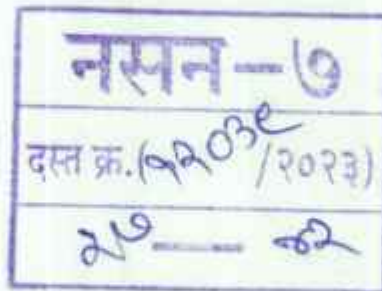 नसन-७
दस्त क्र.(१२०३९/२०२३)
२७ — ४२